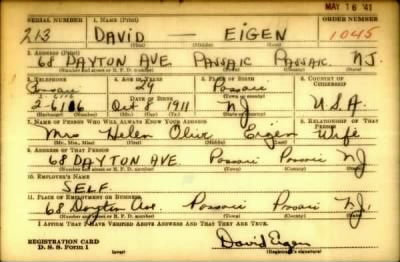 MAY 16 '41
SERIAL NUMBER 1. NAME (Print) ORDER NUMBER
213 DAVID — EIGEN 1045
(First) (Middle) (Last)
2. ADDRESS (Print)
68 DAYTON AVE PASSAIC PASSAIC N.J.
(Number and street or R. F. D. number) (Town) (County) (State)
3. TELEPHONE 4. AGE IN YEARS 5. PLACE OF BIRTH 6. COUNTRY OF CITIZENSHIP
Passaic 29 Passaic
DATE OF BIRTH (Town or county)
2-6116 Oct 8 1911 NJ U.S.A.
(Exchange) (Number) (Mo.) (Day) (Yr.) (State or country)
7. NAME OF PERSON WHO WILL ALWAYS KNOW YOUR ADDRESS 8. RELATIONSHIP OF THAT PERSON
Mrs Helen Olive Eigen Wife
(Mr., Mrs., Miss) (First) (Middle) (Last)
9. ADDRESS OF THAT PERSON
68 DAYTON AVE Passaic Passaic NJ
(Number and street or R. F. D. number) (Town) (County) (State)
10. EMPLOYER'S NAME
SELF
11. PLACE OF EMPLOYMENT OR BUSINESS
68 Dayton Ave. Passaic Passaic N.J.
(Number and street or R. F. D. number) (Town) (County) (State)
I AFFIRM THAT I HAVE VERIFIED ABOVE ANSWERS AND THAT THEY ARE TRUE.
REGISTRATION CARD
D. S. S. Form 1 (over) David Eigen
(Registrant's signature)